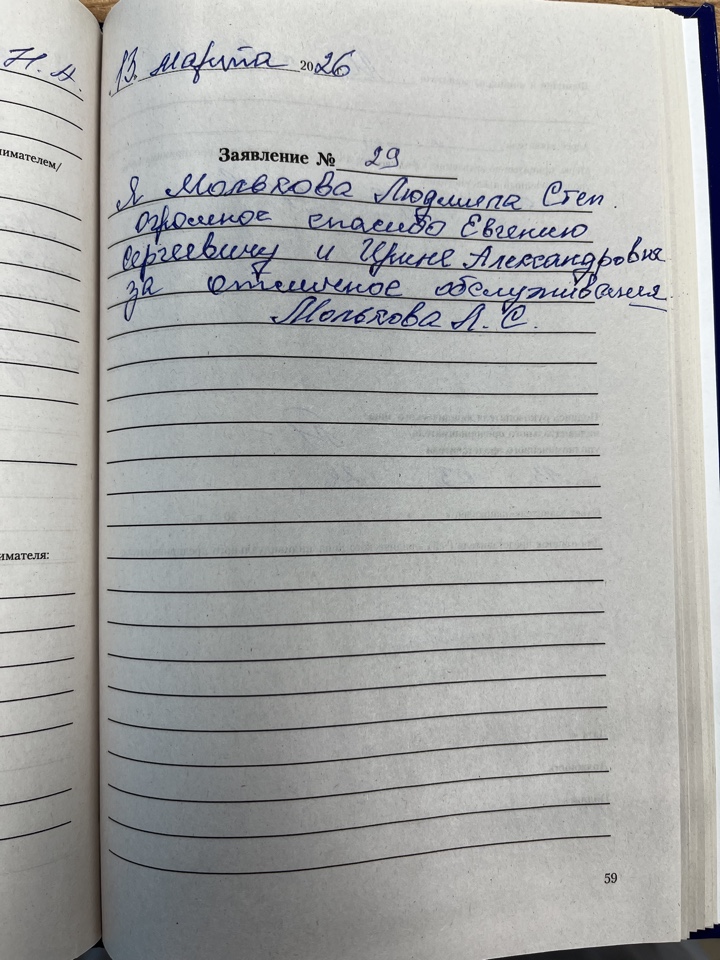 Н. А.
нимателем/
имателя:
13. марта 2026
Заявление № 29
Я Молькова Людмила Степ.
огромное спасибо Евгению
Сергеевичу и Ирине Александровне
за отличное обслуживания.
Молькова Л. С.
59